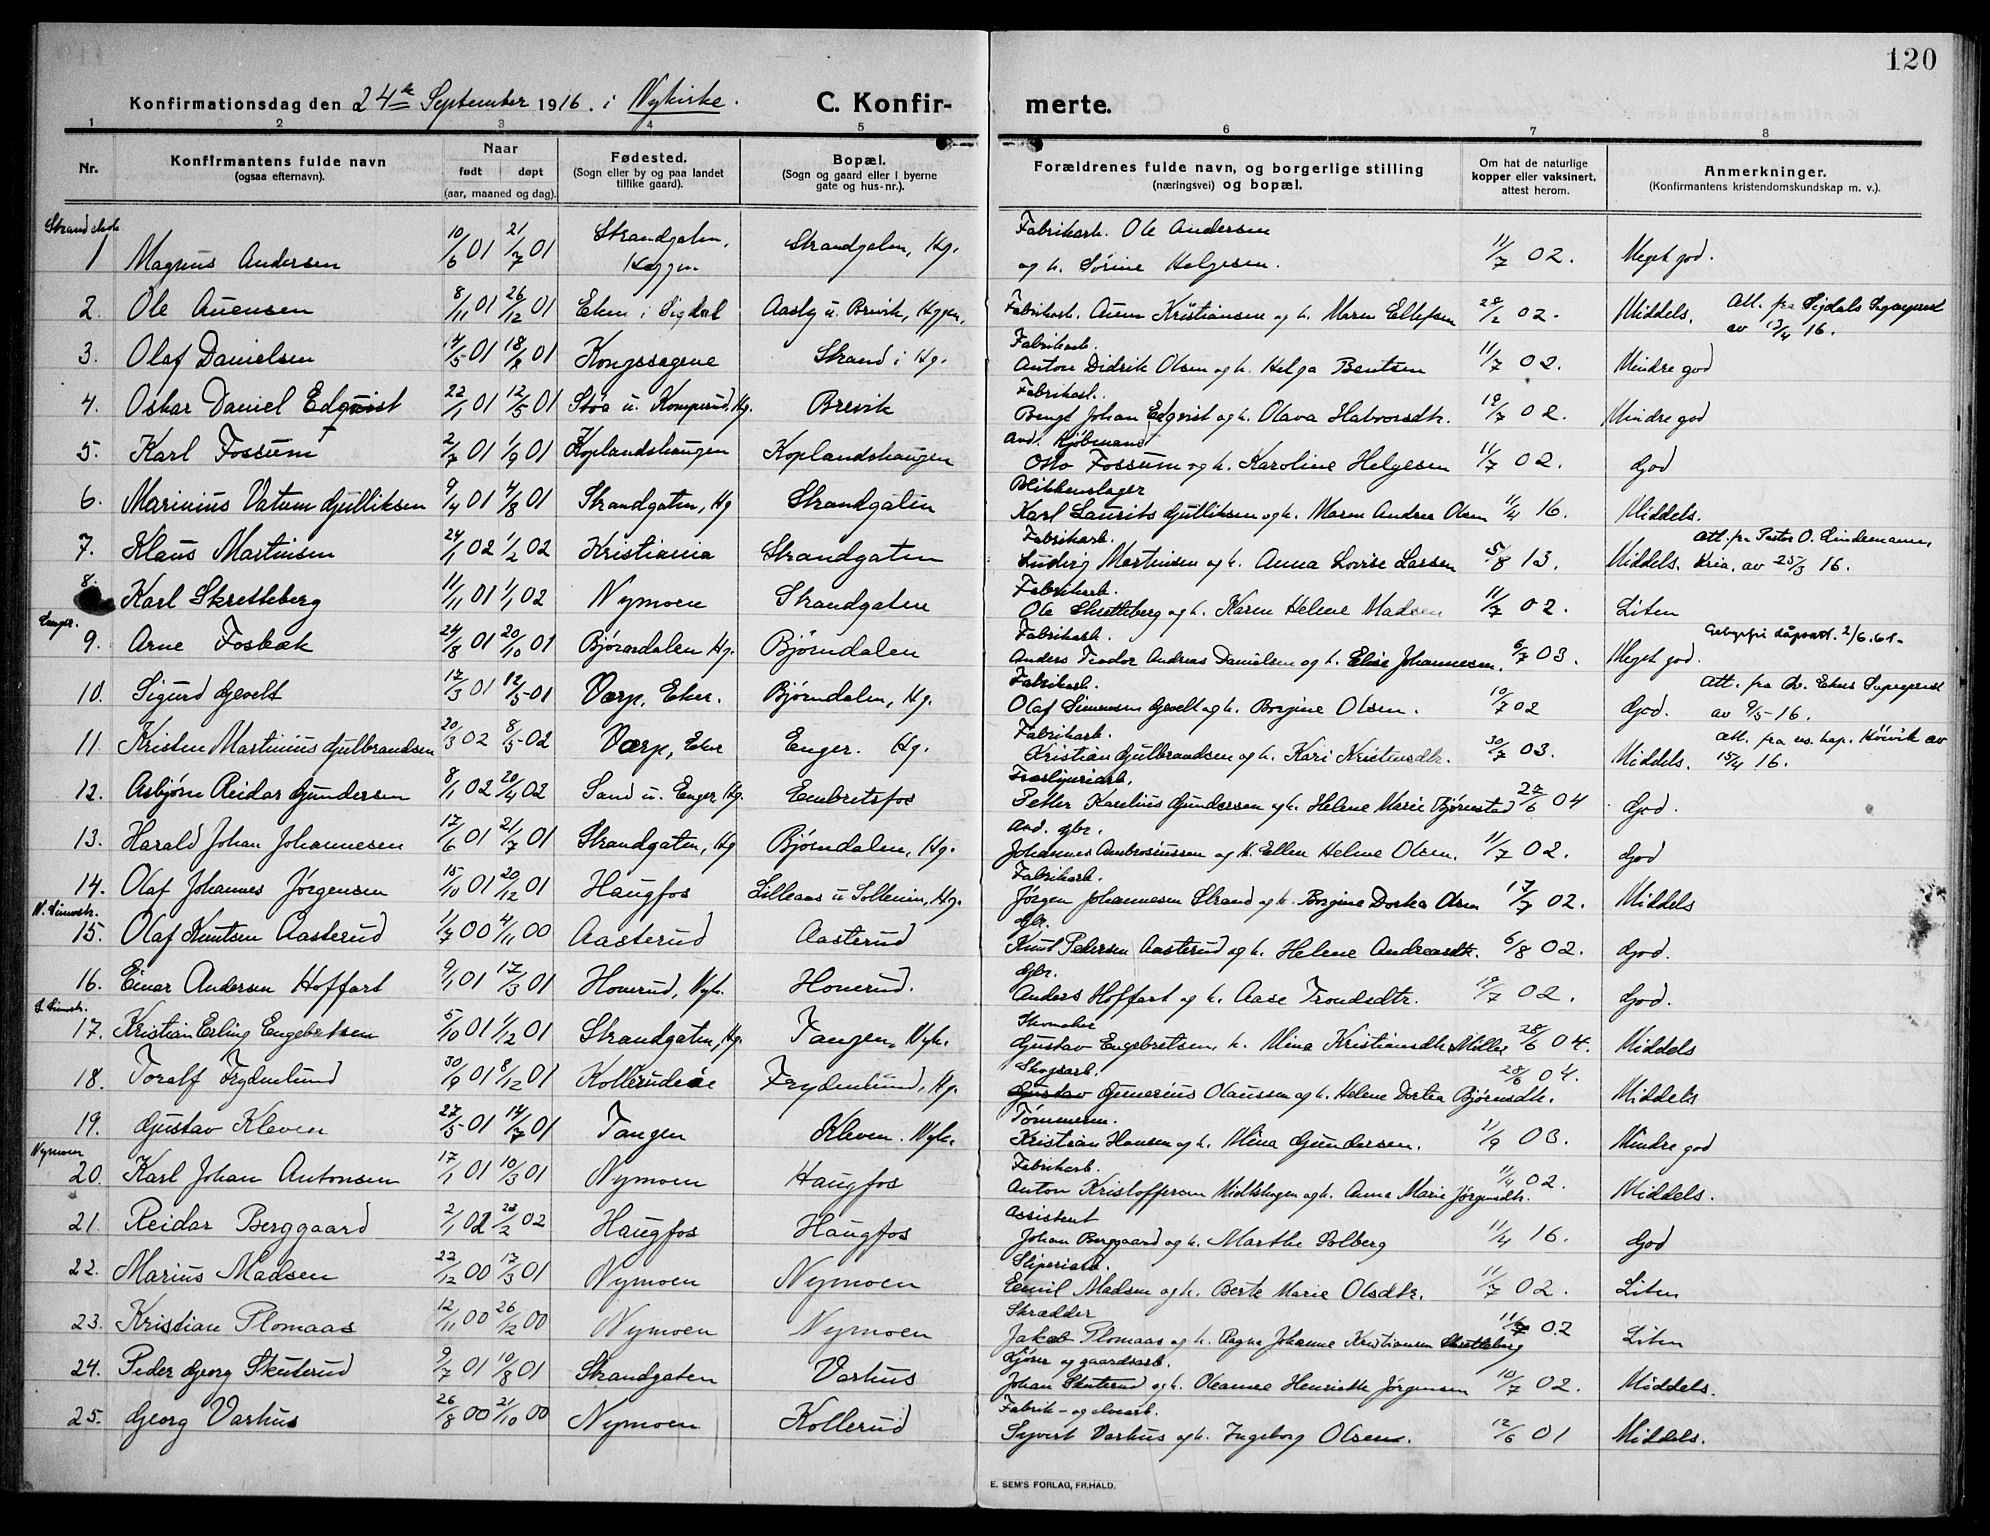 120
Konfirmationsdag den 24de September 1916. i Nykirke. C. Konfir- merte.
1 2 3 4 5 6 7 8
Nr. Konfirmantens fulde navn (ogsaa efternavn). Naar født døpt (aar, maaned og dag). Fødested. (Sogn eller by og paa landet tillike gaard). Bopæl. (Sogn og gaard eller i byerne gate og hus-nr.). Forældrenes fulde navn, og borgerlige stilling (næringsvei) og bopæl. Om hat de naturlige kopper eller vaksinert, attest herom. Anmerkninger. (Konfirmantens kristendomskundskap m. v.).
Fabrikarb. Ole Andersen
1 Magnus Andersen 10/6 01 21/7 01 Strandgaten, Heggen Strandgaten, Hg. og h. Sørine Helgesen. 11/7 02. Meget god.
2. Ole Auensen 8/11 01 26/12 01 Eken i Sigdal Aasly u. Brevik, Hggen. Fabrikarb. Auen Kristiansen og h. Maren Ellefsen 28/2 02. Middels. Att. fra Sigdals Sogneprest av 13/4 16.
Fabrikarb.
3. Olaf Danielsen 14/5 01 18/9 01 Kongssagene Strand i Hg. Anton Didrik Olsen og h. Helga Bentsen 11/7 02. Mindre god
Fabrikarb.
4. Oskar Daniel Edqvist 22/1 01 12/5 01 Støa u. Komperud, Hg. Brevik Bengt Johan Edqvist og h. Olava Halvorsdtr. 19/7 02. Mindre god
And. Kjøbmand
5. Karl Fossum 2/7 01 1/9 01 Koplandshaugen Koplandshaugen Otto Fossum og h. Karoline Helgesen 11/7 02. God
Blikkenslager
6. Marinius Vatum Gulliksen 9/4 01 4/8 01 Strandgaten, Hg Strandgaten Karl Laurits Gulliksen og h. Maren Andrea Olsen 11/4 16. Middels.
Fabrikarb.
7. Klaus Martinsen 24/1 02 1/2 02 Kristiania Strandgaten Ludvig Martinsen og h. Anna Lovise Larsen 5/8 13. Middels. Att. fra Pastor O. Lindemann, Kria, av 25/3 16.
Fabrikarb.
8. Karl Skretteberg 11/11 01 1/1 02 Nymoen Strandgaten Ole Skretteberg og h. Karen Helene Madsen 11/7 02. Liten
Enger.
Fabrikarb.
9. Arne Fosbæk 24/8 01 20/10 01 Bjørndalen Hg. Bjørndalen Anders Teodor Andreas Danielsen og h. Elise Johannesen. 6/7 03. Meget god. Gebyrfri dåpsatt. 2/6.61.
Fabrikarb.
10. Sigurd Gevelt 17/3 01 12/5 01 Værp, Eker. Bjørndalen, Hg. Olaf Simensen Gevelt og h. Borgine Olsen. 10/7 02 God. Att. fra Ø. Ekers Sogneprest av 9/5-16.
Fabrikarb.
11. Kristen Martinius Gulbrandsen 20/3 02 8/5 02 Værp, Eker Enger. Hg. Kristian Gulbrandsen og h. Kari Kristensdtr. 30/7 03. Middels. Att. fra res. kap. Höivik av 15/4 16.
Træsliperiarb.
12. Asbjørn Reidar Gundersen 8/1 02 20/4 02 Sand u. Enger, Hg. Embretsfos Petter Karelius Gundersen og h. Helene Marie Bjørnstad 27/6 04 God.
And. gbr.
13. Harald Johan Johannesen 17/6 01 21/7 01 Strandgaten, Hg Bjørndalen, Hg. Johannes Ambrosiussen og h. Ellen Helene Olsen. 11/7 02. God
Fabrikarb.
14. Olaf Johannes Jørgensen 15/10 01 20/12 01 Haugfos Lilleaas u Solheim, Hg. Jørgen Johannesen Strand og h. Borgine Dortea Olsen 17/7 02. Middels
N. Simostr.
Gbr.
15. Olaf Knutsen Aasterud 1/7 00 4/11 00 Aasterud Aasterud Knut Pedersen Aasterud og h. Helene Andreasdtr. 6/8 02. God.
Gbr.
16. Einar Andersen Hoffart 9/1 01 17/3 01 Honerud, Nyk. Honerud. Anders Hoffart og h. Aase Trondsdtr. 19/7 02. God.
S. Simostr.
Skomaker
17. Kristian Erling Engebretsen 5/10 01 1/12 01 Strandgaten, Hg. Tangen, Nyk. Gustav Engebretsen, h. Mina Kristiansdtr Miller 28/6 04. Middels
Skogsarb.
18. Toralf Frydenlund 30/9 01 8/12 01 Kollerudeie Frydenlund, Hg. Gustav Gunerius Olaussen og h. Helene Dortea Bjørnsdtr. 28/6 04. Middels
Tømmerm.
19. Gustav Kleven 27/5 01 14/7 01 Tangen Kleven. Nyk. Kristian Hansen og h. Mina Gundersen. 11/9 03. Mindre god
Nymoen
Fabrikarb.
20. Karl Johan Antonsen 17/1 01 10/3 01 Nymoen Haugfos Anton Kristoffersen Midtskogen og h. Anna Marie Jørgensdtr. 11/4 02. Middels.
Assistent
21. Reidar Berggaard 2/1 02 23/2 02 Haugfos Haugfos Johan Berggaard og h. Marthe Solberg 11/4 16. God
Sliperiarb.
22. Marius Madsen 22/12 00 17/3 01 Nymoen Nymoen Emil Madsen og h. Berte Marie Olsdtr. 11/7 02. Liten
Skrædder
23. Kristian Plomaas 12/11 00 26/12 00 Nymoen Nymoen Jakob Plomaas og h. Ragna Johanne Kristiansen Skretteberg 11/7 02 Liten
Kjører og gaardsarb.
24. Peder Georg Skuterud 9/7 01 10/8 01 Strandgaten Varhus Johan Skuterud og h. Oleanna Henriette Jørgensen 10/7 02. Middels.
Fabrik- og elvearb.
25. Georg Varhus 26/8 00 21/10 00 Nymoen Kollerud Syvert Varhus og h. Ingeborg Olsen. 12/6 01 Middels.
E. SEM'S FORLAG, FR.HALD.